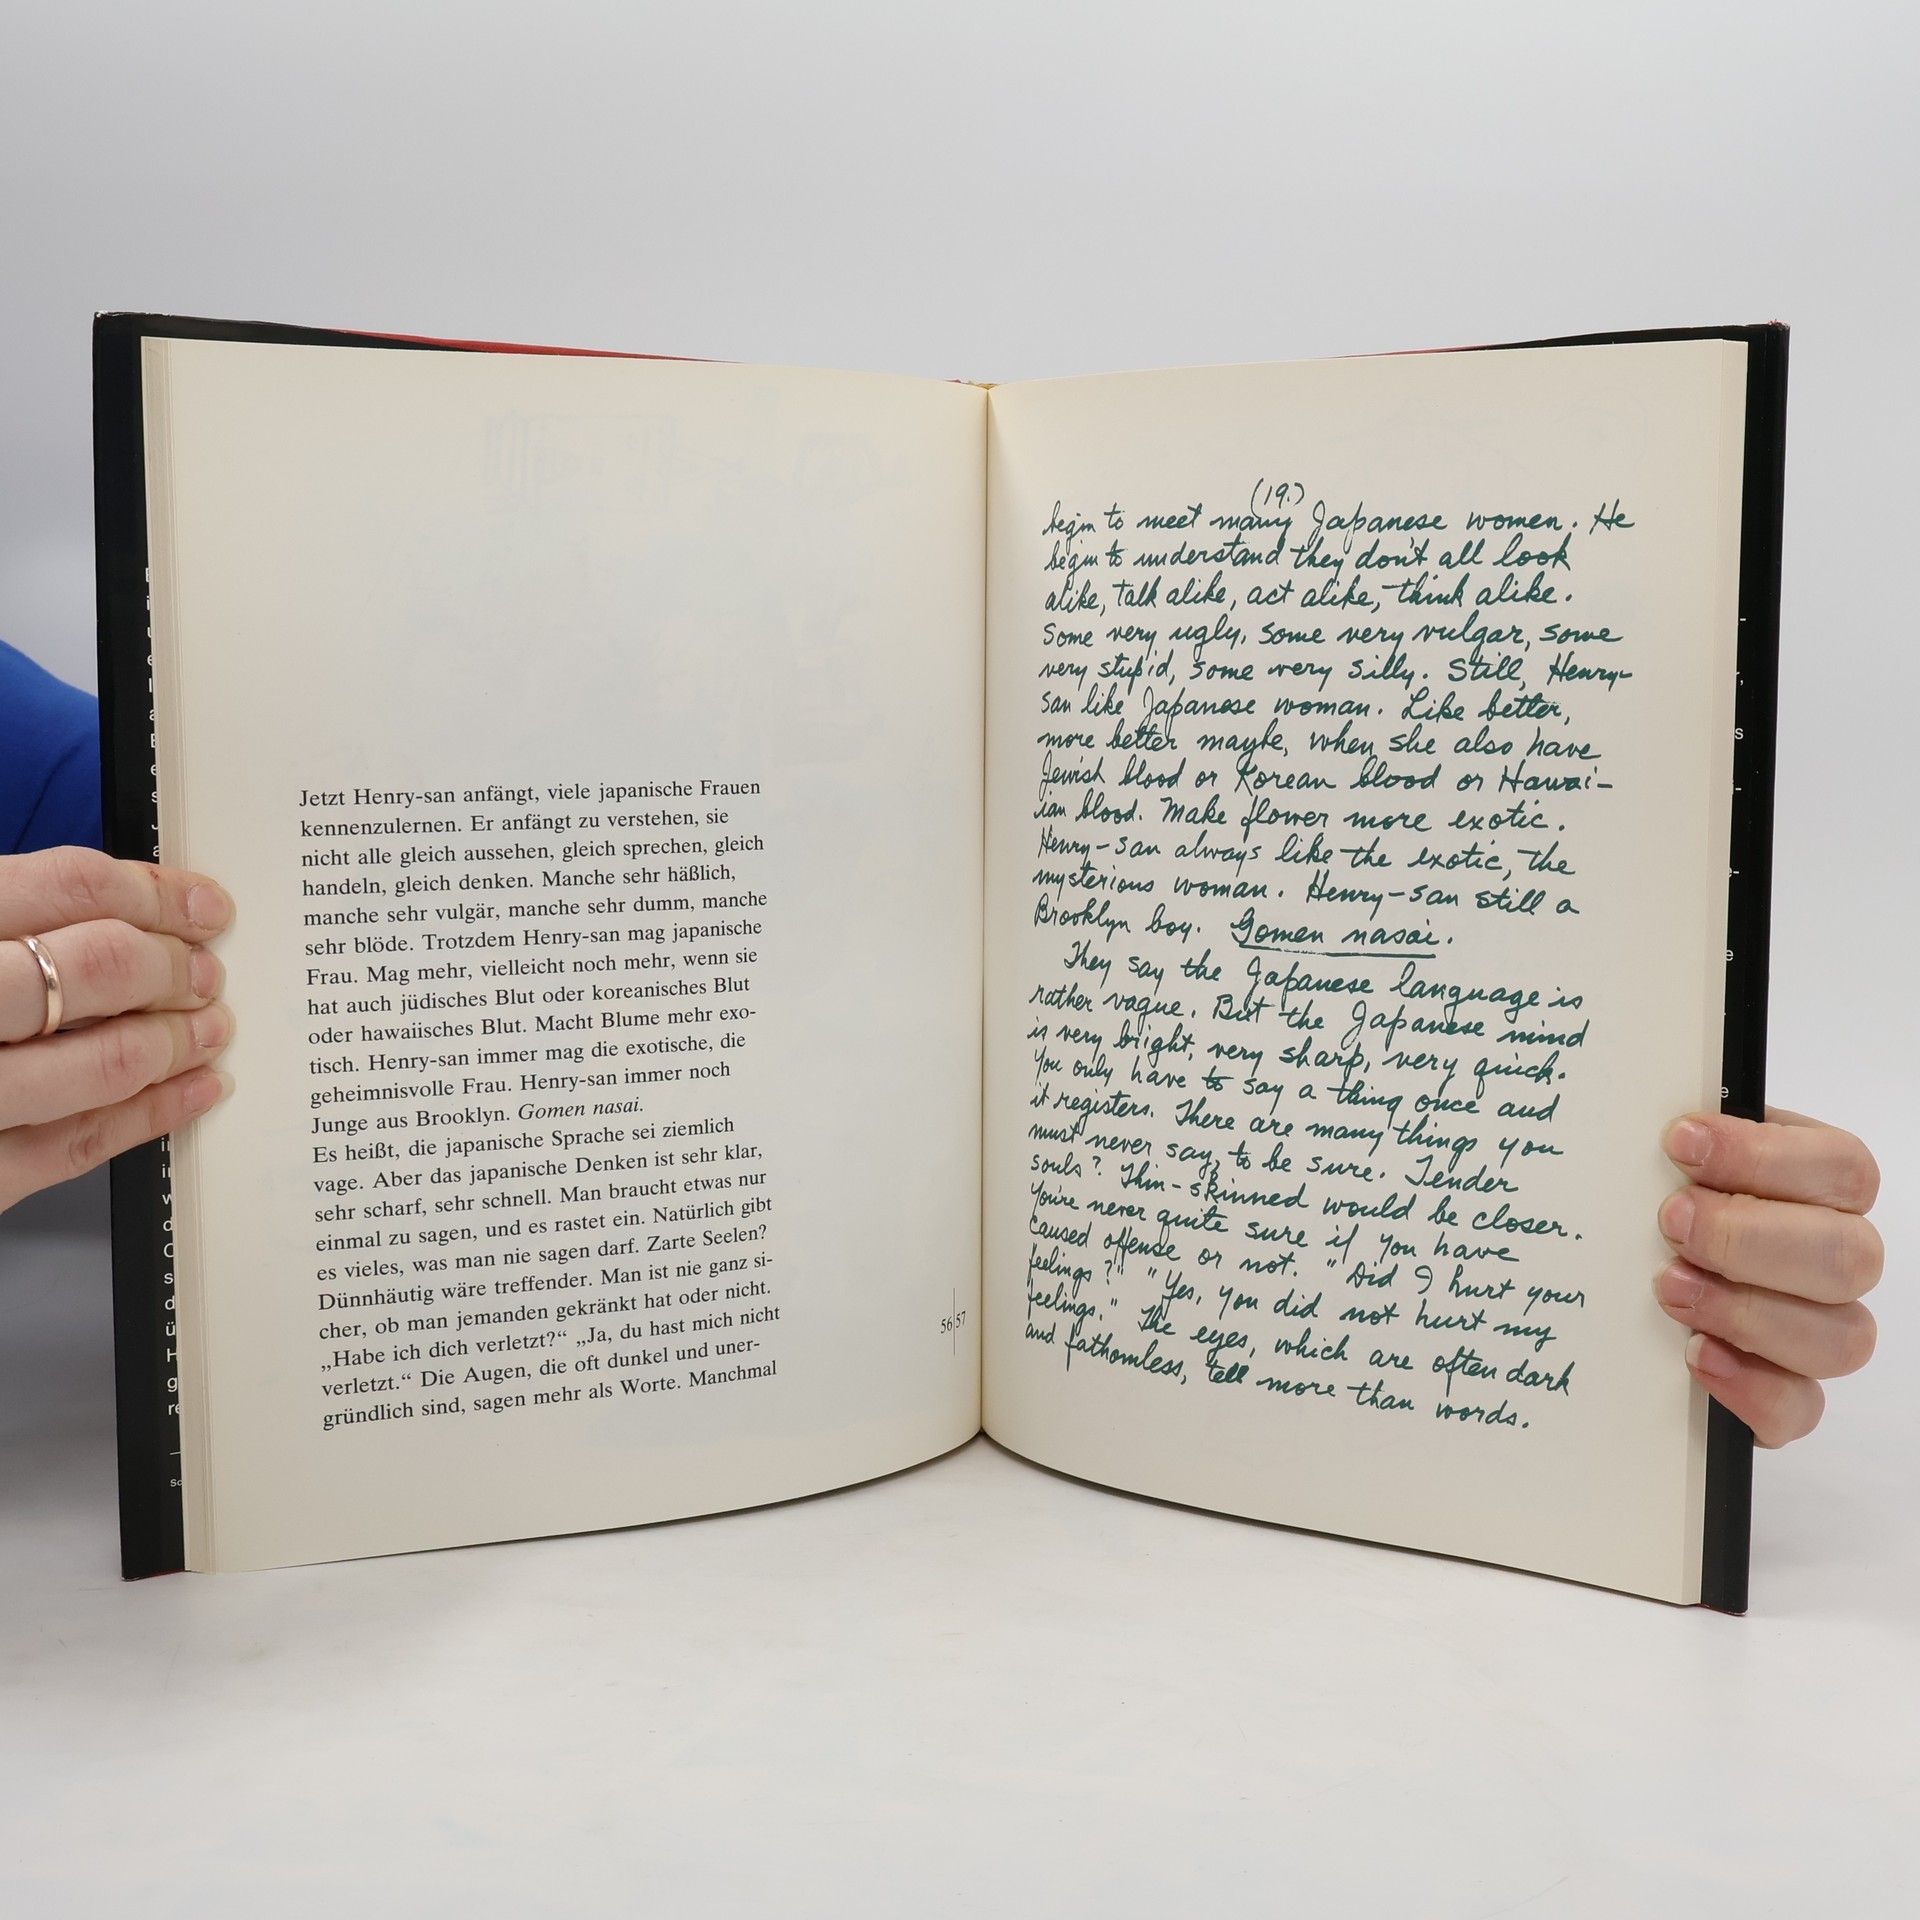 Jetzt Henry-san anfängt, viele japanische Frauen
kennenzulernen. Er anfängt zu verstehen, sie
nicht alle gleich aussehen, gleich sprechen, gleich
handeln, gleich denken. Manche sehr häßlich,
manche sehr vulgär, manche sehr dumm, manche
sehr blöde. Trotzdem Henry-san mag japanische
Frau. Mag mehr, vielleicht noch mehr, wenn sie
hat auch jüdisches Blut oder koreanisches Blut
oder hawaiisches Blut. Macht Blume mehr exo-
tisch. Henry-san immer mag die exotische, die
geheimnisvolle Frau. Henry-san immer noch
Junge aus Brooklyn. Gomen nasai.
Es heißt, die japanische Sprache sei ziemlich
vage. Aber das japanische Denken ist sehr klar,
sehr scharf, sehr schnell. Man braucht etwas nur
einmal zu sagen, und es rastet ein. Natürlich gibt
es vieles, was man nie sagen darf. Zarte Seelen?
Dünnhäutig wäre treffender. Man ist nie ganz si-
cher, ob man jemanden gekränkt hat oder nicht.
„Habe ich dich verletzt?“ „Ja, du hast mich nicht
verletzt.“ Die Augen, die oft dunkel und uner-
gründlich sind, sagen mehr als Worte. Manchmal
56|57
(19.)
begin to meet many Japanese women. He
begin to understand they don't all look
alike, talk alike, act alike, think alike.
Some very ugly, some very vulgar, some
very stupid, some very silly. Still, Henry-
san like Japanese woman. Like better,
more better maybe, when she also have
Jewish blood or Korean blood or Hawai-
ian blood. Make flower more exotic.
Henry-san always like the exotic, the
mysterious woman. Henry-san still a
Brooklyn boy. Gomen nasai.
They say the Japanese language is
rather vague. But the Japanese mind
is very bright, very sharp, very quick.
You only have to say a thing once and
it registers. There are many things you
must never say, to be sure. Tender
souls? Thin-skinned would be closer.
You're never quite sure if you have
caused offense or not. "Did I hurt your
feelings?" "Yes, you did not hurt my
feelings." The eyes, which are often dark
and fathomless, tell more than words.